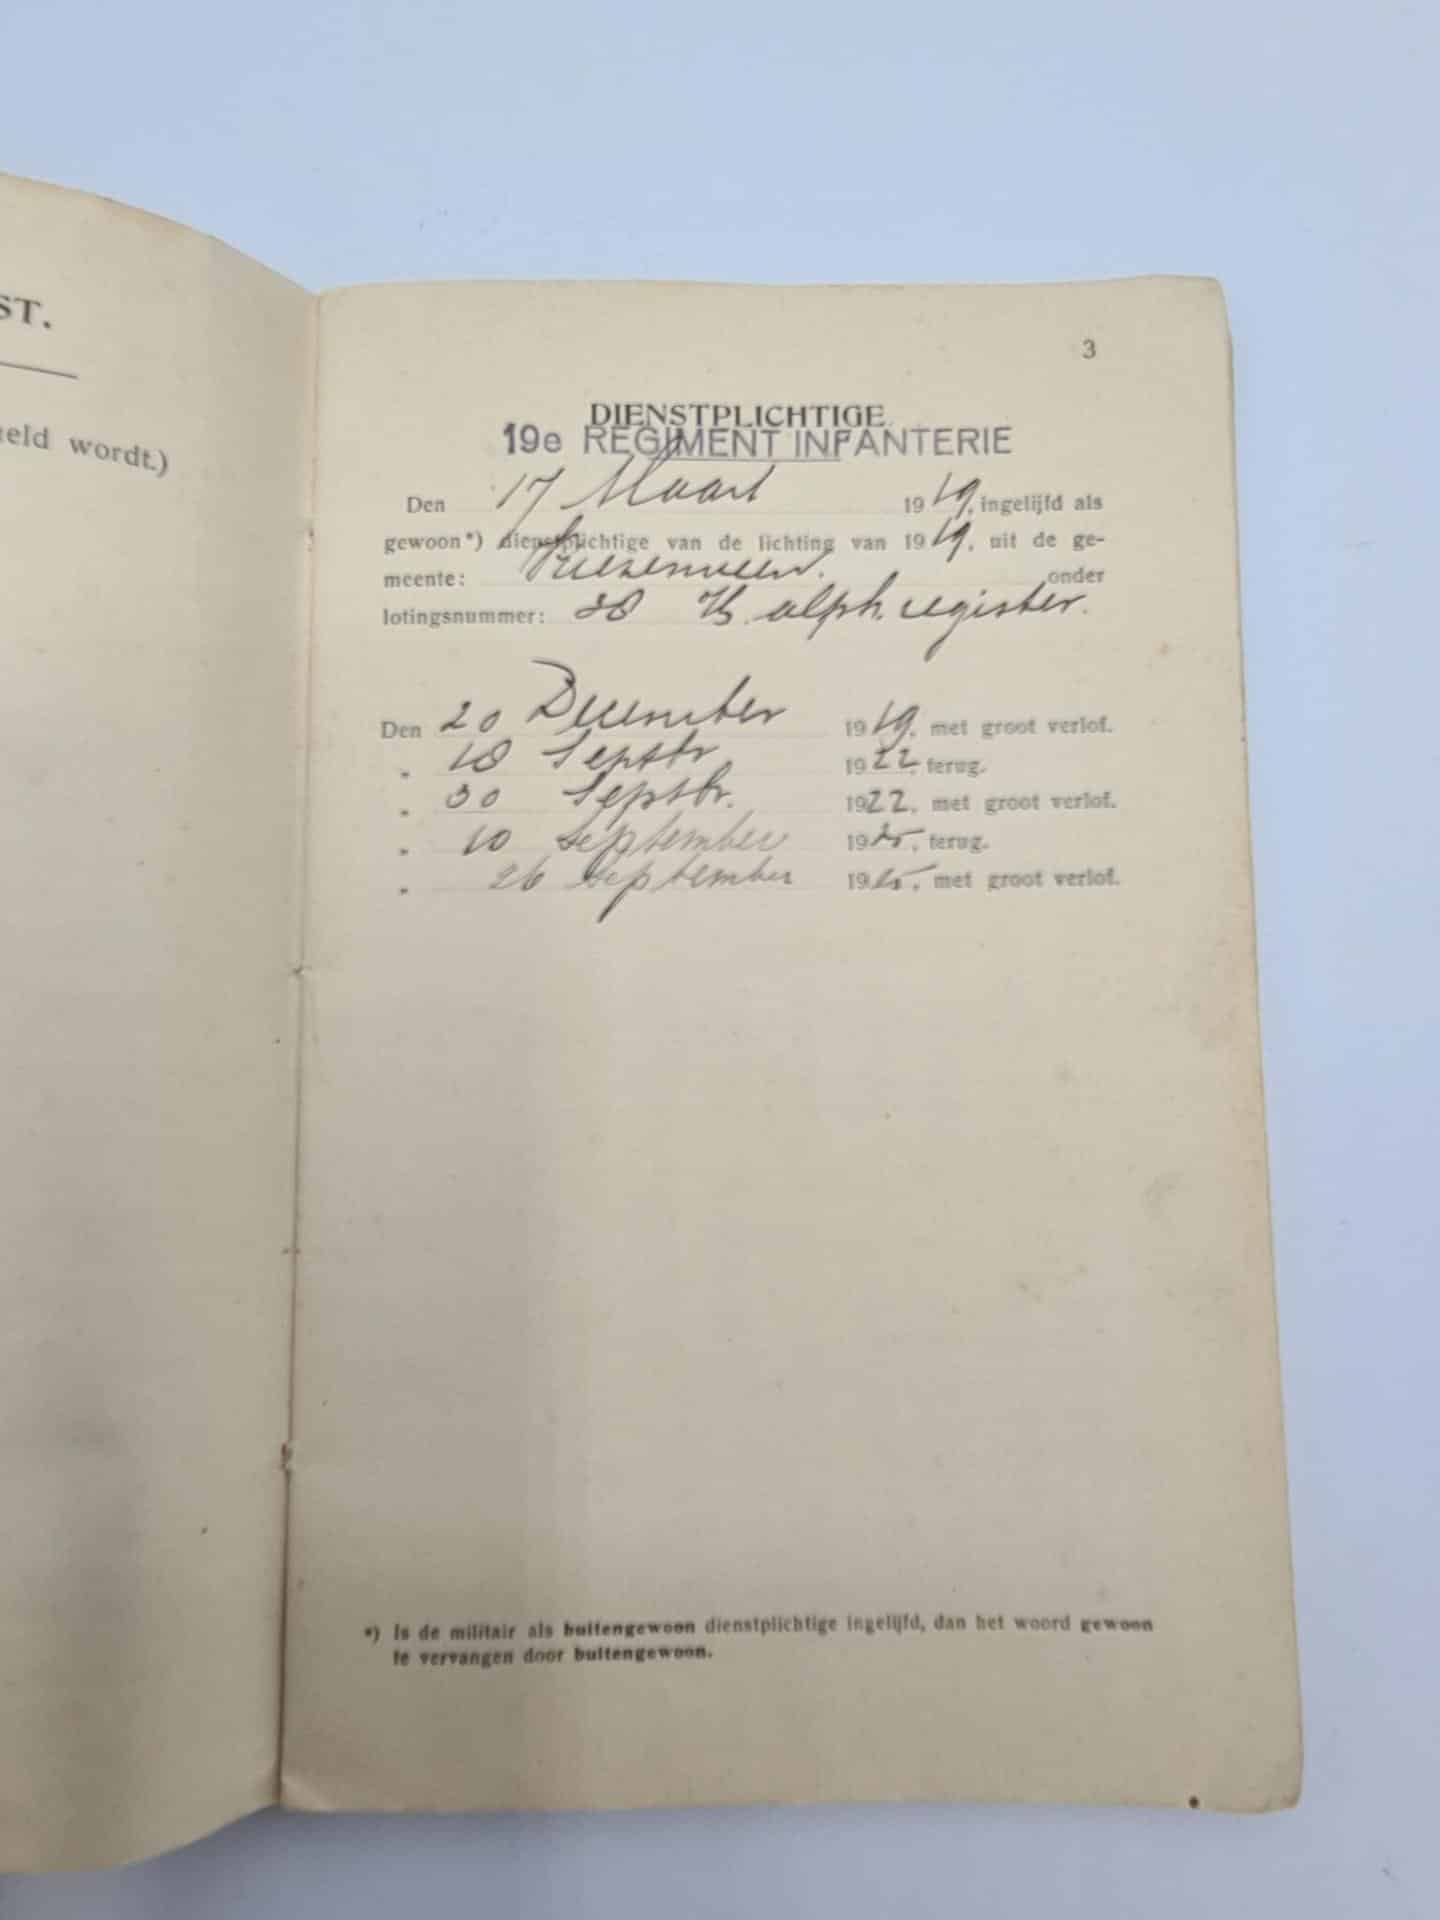 ST.
eld wordt.)
3
DIENSTPLICHTIGE.
19e REGIMENT INFANTERIE
Den 17 Maart 1919, ingelijfd als
gewoon*) dienstplichtige van de lichting van 1919, uit de ge-
meente: Vriezenveen. onder
lotingsnummer: 28 alph. register.
Den 20 December 1919, met groot verlof.
" 18 Septbr 1922, terug.
" 30 Septbr. 1922, met groot verlof.
" 10 September 1925, terug.
" 26 September 1925, met groot verlof.
*) Is de militair als buitengewoon dienstplichtige ingelijfd, dan het woord gewoon
te vervangen door buitengewoon.